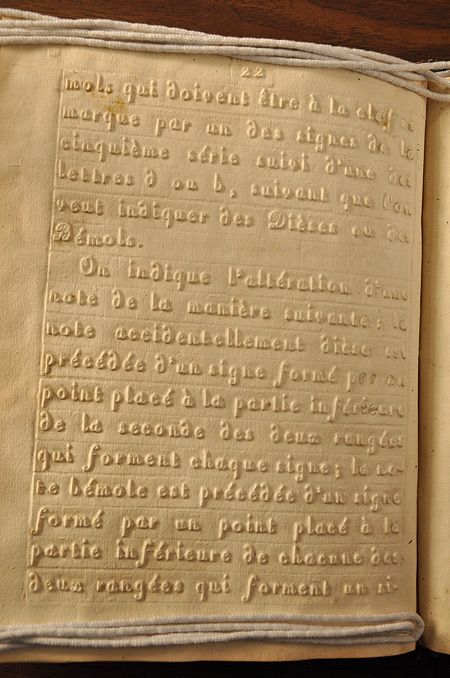 22
mols qui doivent être à la clef se
marque par un des signes de la
cinquième série suivi d'une des
lettres d ou b, suivant que l'on
veut indiquer des Dièses ou des
Bémols.
On indique l'altération d'une
note de la manière suivante: la
note accidentellement dièse est
précédée d'un signe formé par un
point placé à la partie inférieure
de la seconde des deux rangées
qui forment chaque signe; la no-
te bémole est précédée d'un signe
formé par un point placé à la
partie inférieure de chacune des
deux rangées qui forment un si-